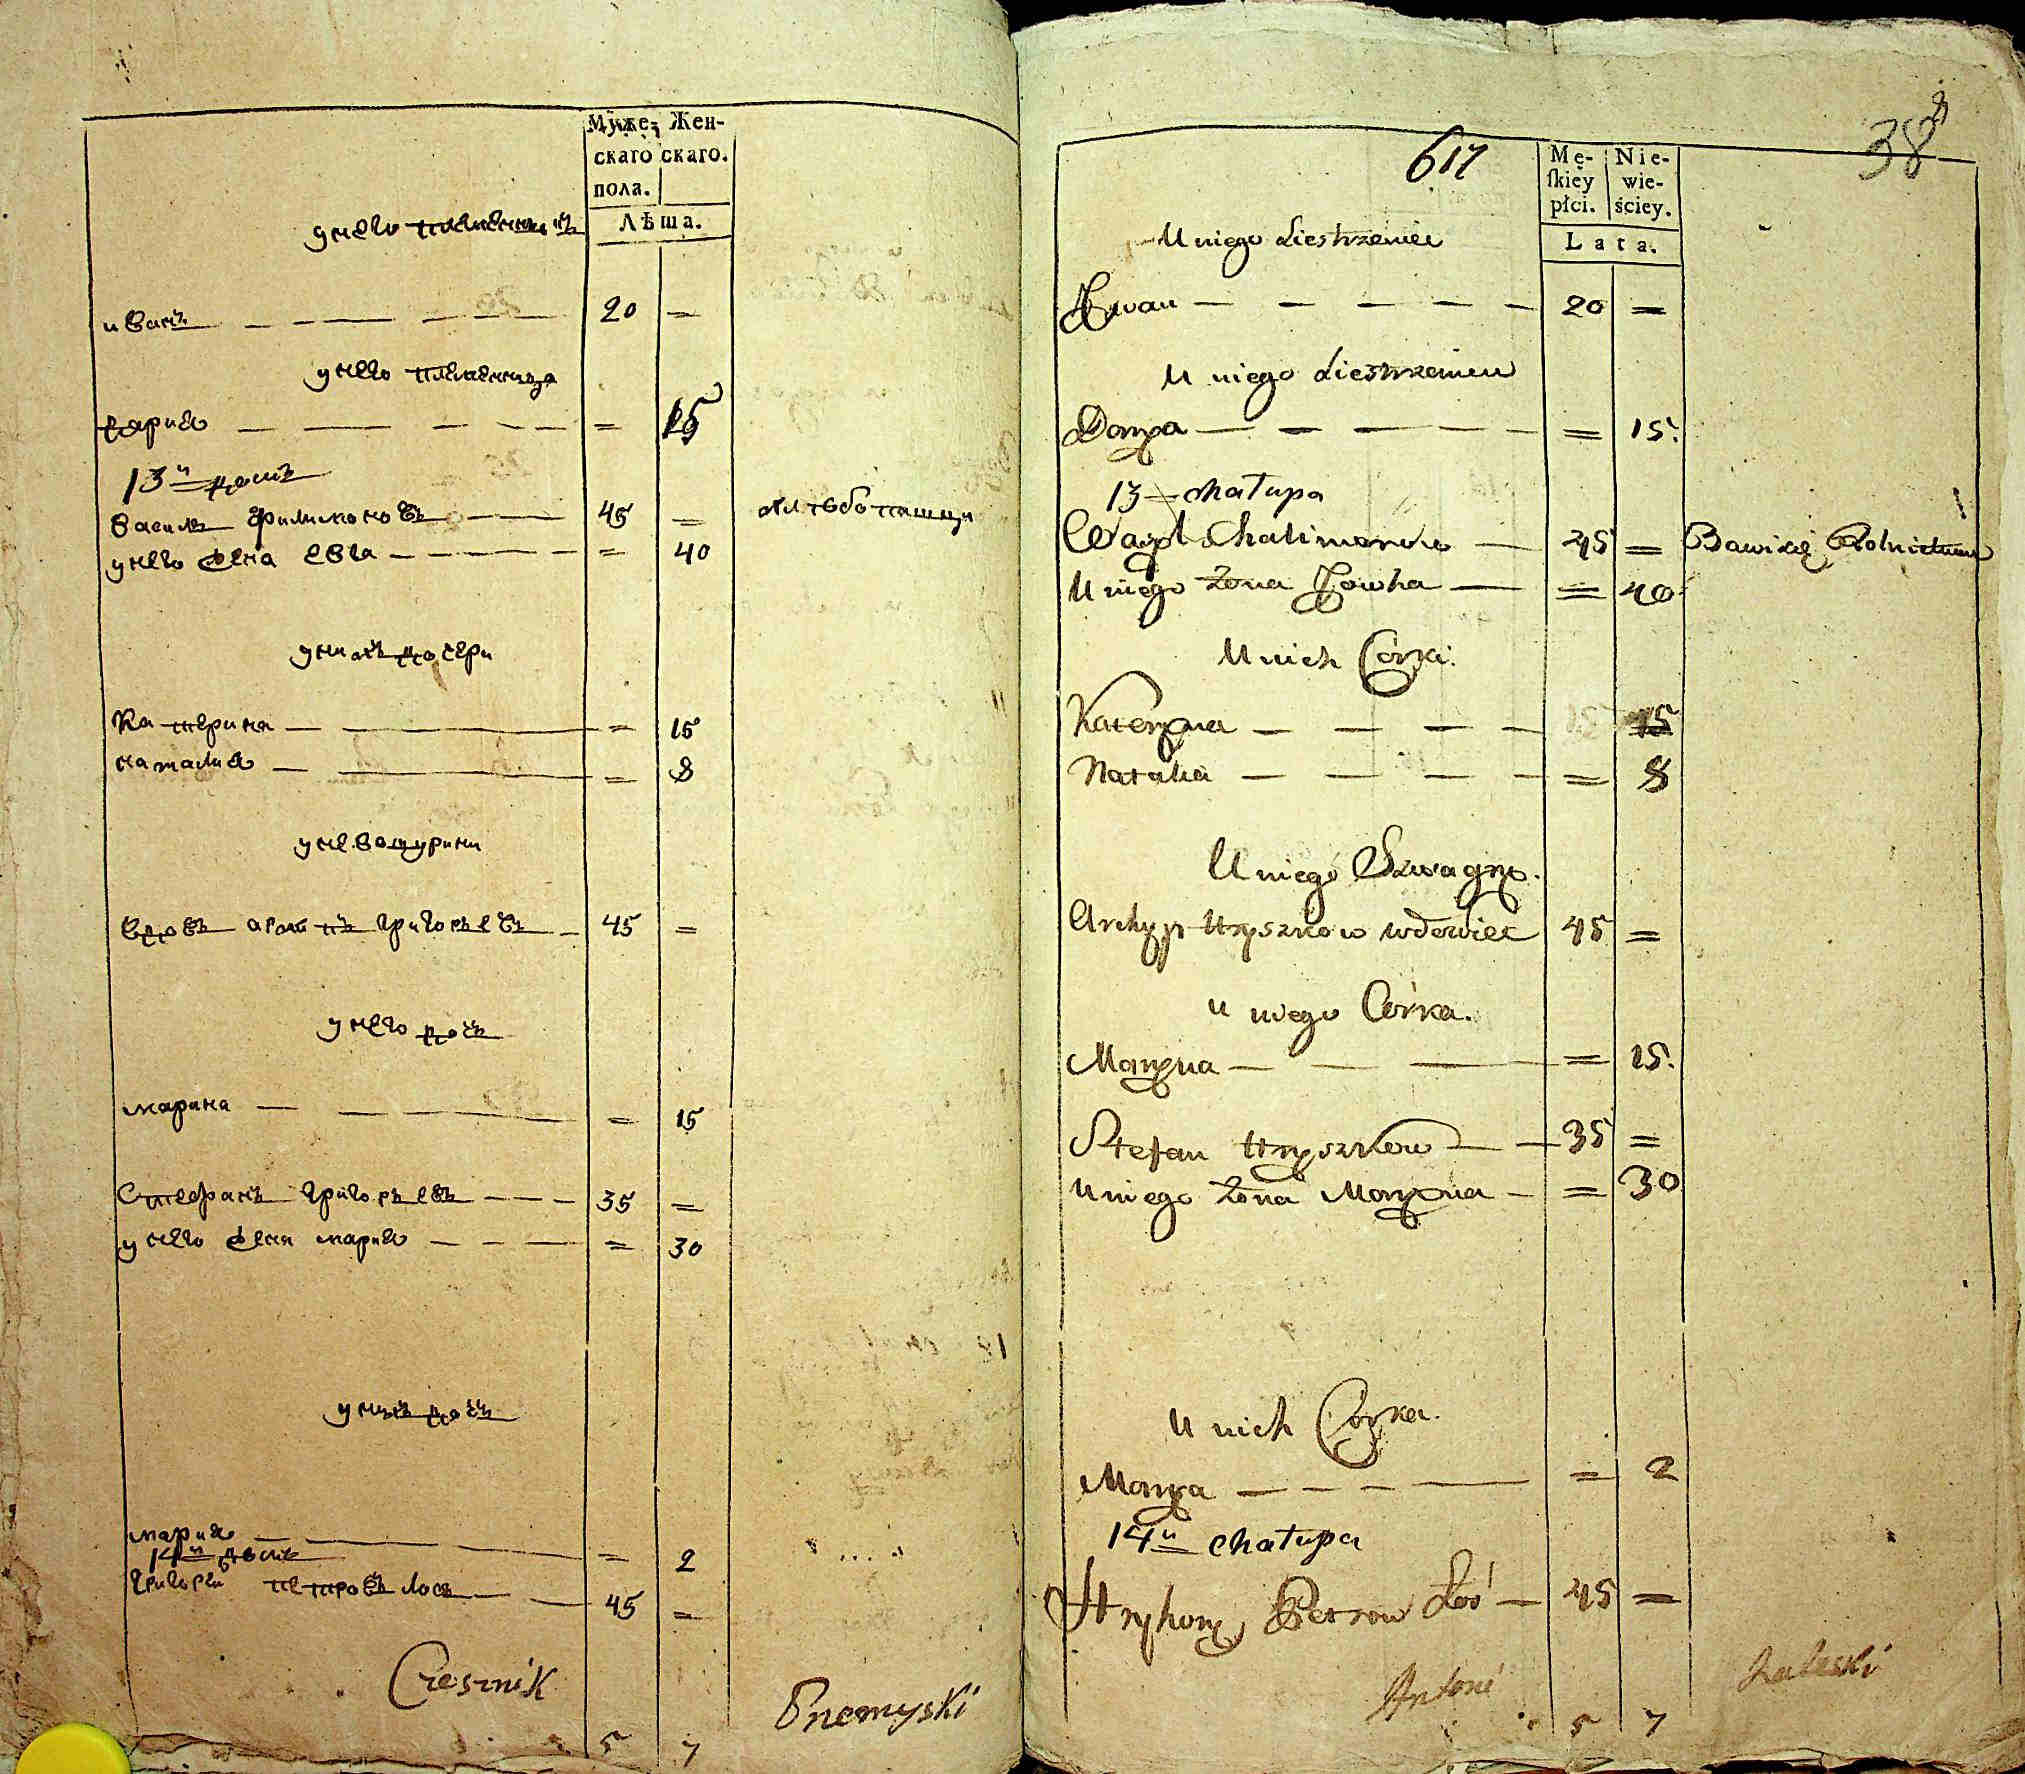 Муже- Жен-
скаго скаго.
пола.
Лѣта.
унего племенникъ
иванъ — — — 20 =
унего племеница
дария — — — = 15
13й домъ
василь филимоновъ — 45 = хлѣбопашци
унего жена евга — — = 40
унихъ дочери
катерина — — = 15
наталия — — = 8
унево шурини
вдовъ архипъ григорьевъ — 45 =
унего дочь
марина — — = 15
Стефанъ григорьевъ — — 35 =
унего жена мария — — = 30
унихъ дочь
мария — — = 2
14й домъ
григорей петровъ лось — 45 =
Czesznik
Przemyski
5 7
617
38
Mę- Nie-
skiey wie-
płci. ściey.
Lata.
U niego Siestrzeniec
Iwan — — — 20 =
U niego Siestrzenica
Darya — — — = 15.
13 chałupa
Wasyl Chalimonow — 45 = Bawi się Rolnictwem
U niego Żona Jowha — = 40
U nich Córki.
Kateryna — — — 15
Natalia — — — = 8
U niego Szwagry.
Archyp Hryszkow wdowiec 45 =
u niego Córka.
Maryna — — — = 15.
Stefan Hryszkow — — 35 =
U niego Żona Maryna — = 30
U nich Córka.
Marya — — — = 2
14н chałupa
Hryhory Petrow Łoś — 45 =
Antoni
Zaleski
5 7